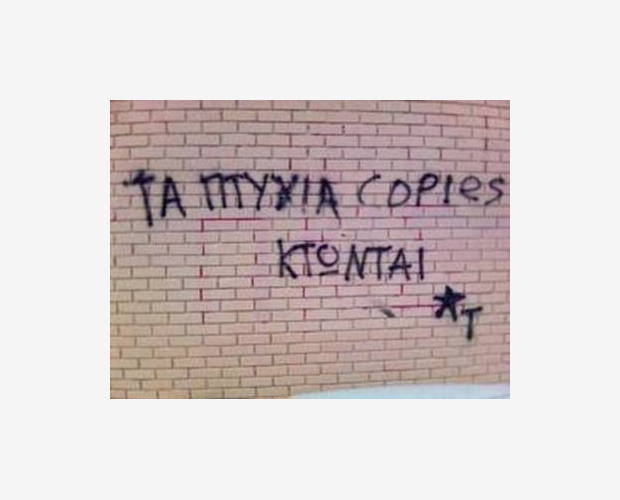 ΤΑ ΠΤΥΧΙΑ COPIes
ΚΤΩΝΤΑΙ
★T